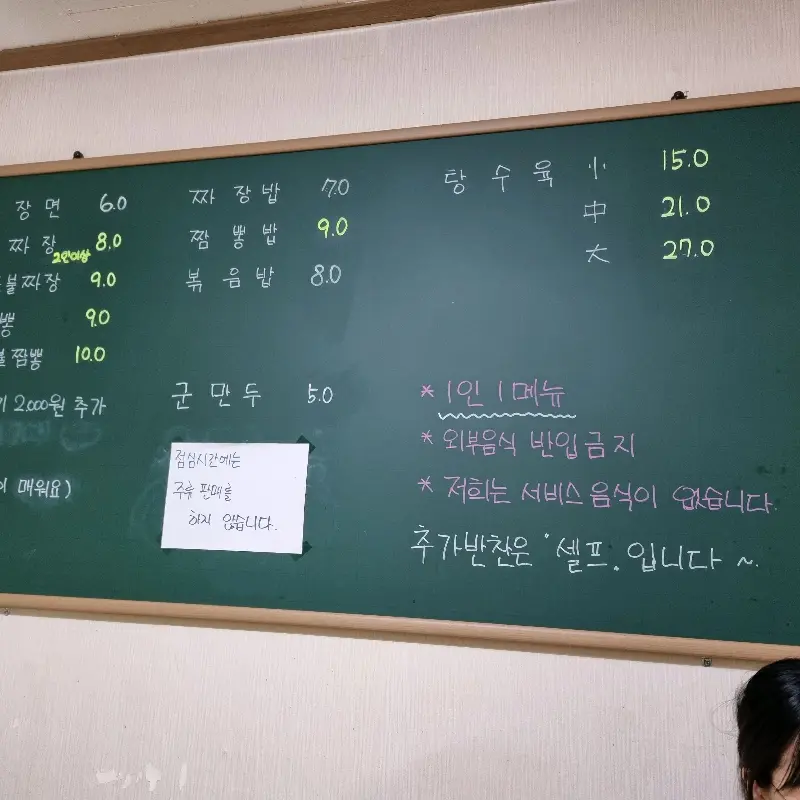 장면 6.0
짜장 8.0
2인이상
불짜장 9.0
뽕 9.0
불짬뽕 10.0
기 2.000원 추가
매워요)
짜장밥 7.0
짬뽕밥 9.0
볶음밥 8.0
군만두 5.0
점심시간에는
주류 판매를
하지 않습니다.
탕수육 小 15.0
中 21.0
大 27.0
* 1인 1메뉴
* 외부음식 반입금지
* 저희는 서비스음식이 없습니다.
추가반찬은 '셀프. 입니다 ~.